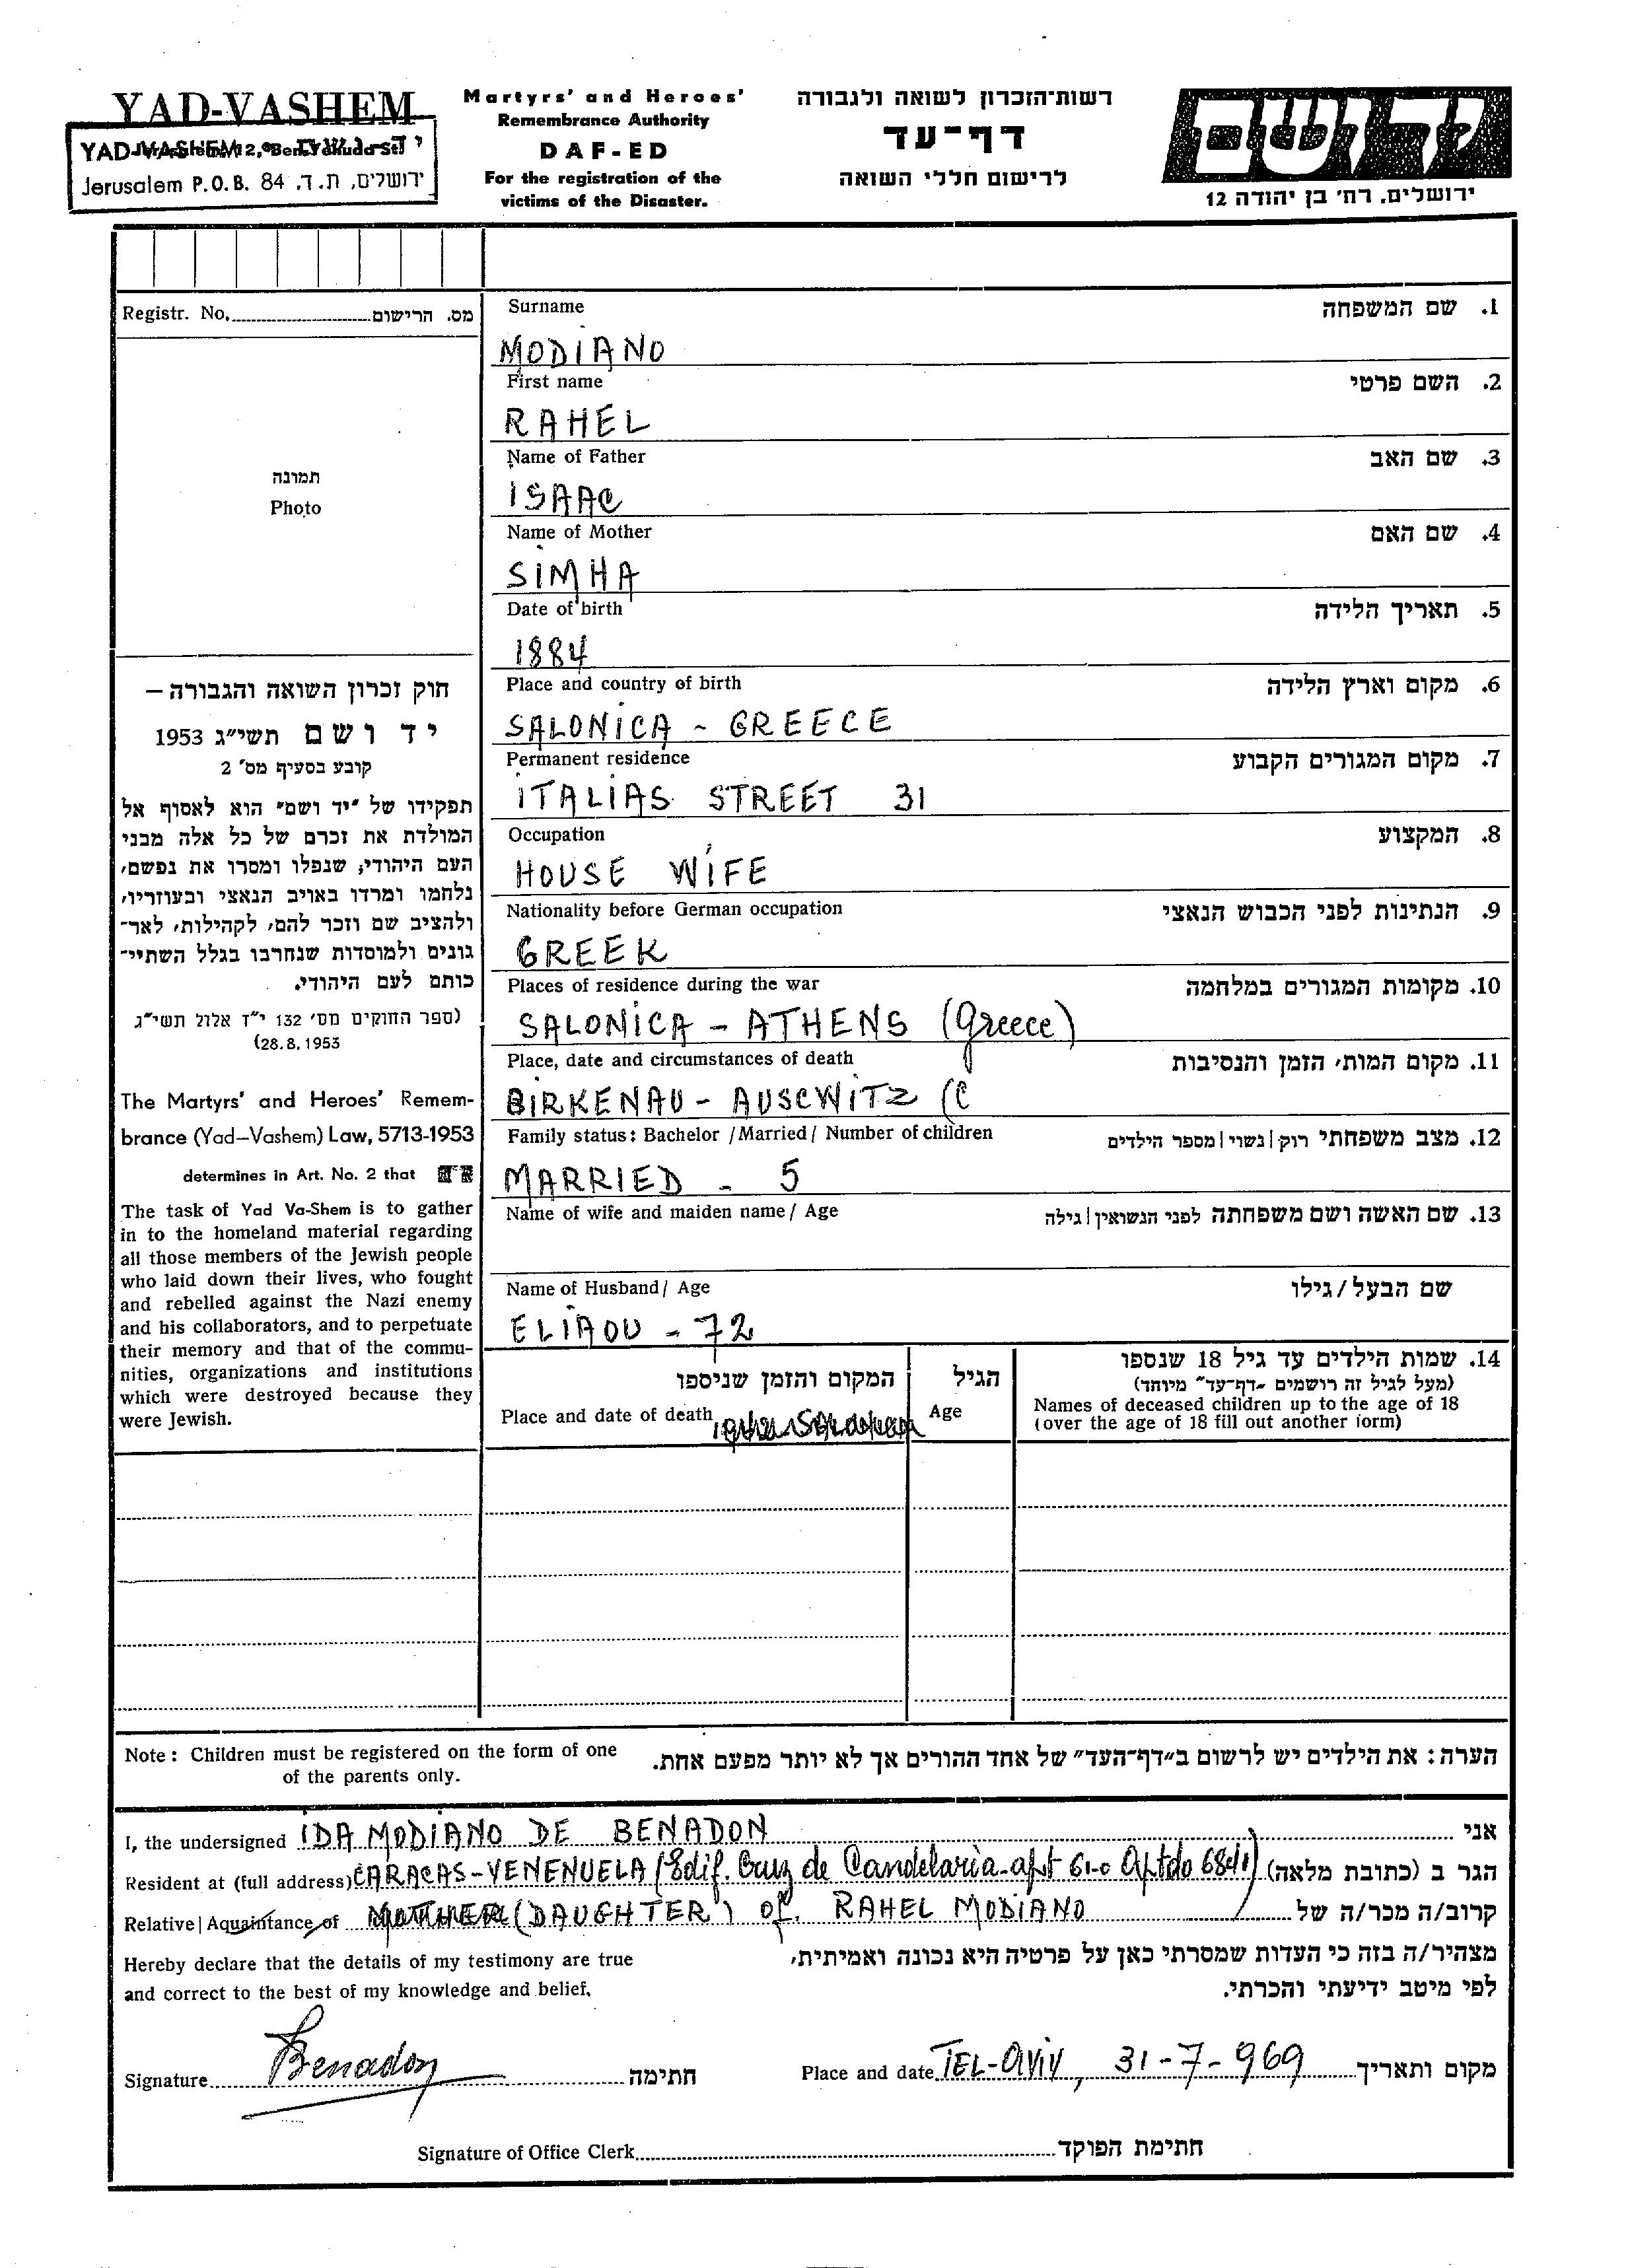 YAD-VASHEM
YAD-VASHEM
Jerusalem P.O.B. 84 ירושלים, ת.ד.
Martyrs' and Heroes'
Remembrance Authority
DAF-ED
For the registration of the
victims of the Disaster.
רשות-הזכרון לשואה ולגבורה
דף-עד
לרישום חללי השואה
יד ושם
ירושלים, רח' בן יהודה 12
Registr. No. מס. הרישום
תמונה
Photo
חוק זכרון השואה והגבורה –
יד ושם תשי"ג 1953
קובע בסעיף מס' 2
תפקידו של "יד ושם" הוא לאסוף אל
המולדת את זכרם של כל אלה מבני
העם היהודי, שנפלו ומסרו את נפשם,
נלחמו ומרדו באויב הנאצי ובעוזריו,
ולהציב שם וזכר להם, לקהילות, לאר-
גונים ולמוסדות שנחרבו בגלל השתיי-
כותם לעם היהודי.
(ספר החוקים מס' 132 י"ז אלול תשי"ג
(28.8.1953
The Martyrs' and Heroes' Remem-
brance (Yad-Vashem) Law, 5713-1953
determines in Art. No. 2 that
The task of Yad Va-Shem is to gather
in to the homeland material regarding
all those members of the Jewish people
who laid down their lives, who fought
and rebelled against the Nazi enemy
and his collaborators, and to perpetuate
their memory and that of the commu-
nities, organizations and institutions
which were destroyed because they
were Jewish.
Surname 1. שם המשפחה
MODIANO
First name 2. השם פרטי
RAHEL
Name of Father 3. שם האב
ISAAC
Name of Mother 4. שם האם
SIMHA
Date of birth 5. תאריך הלידה
1884
Place and country of birth 6. מקום וארץ הלידה
SALONICA - GREECE
Permanent residence 7. מקום המגורים הקבוע
ITALIAS STREET 31
Occupation 8. המקצוע
HOUSE WIFE
Nationality before German occupation 9. הנתינות לפני הכבוש הנאצי
GREEK
Places of residence during the war 10. מקומות המגורים במלחמה
SALONICA - ATHENS (Greece)
Place, date and circumstances of death 11. מקום המות, הזמן והנסיבות
BIRKENAU - AUSCWITZ (C
Family status: Bachelor /Married/ Number of children 12. מצב משפחתי רוק|נשוי|מספר הילדים
MARRIED - 5
Name of wife and maiden name/ Age 13. שם האשה ושם משפחתה לפני הנשואין|גילה
Name of Husband/ Age שם הבעל/גילו
ELIAOU - 72
המקום והזמן שניספו
Place and date of death
הגיל
Age
14. שמות הילדים עד גיל 18 שנספו
(מעל לגיל זה רושמים "דף-עד" מיוחד)
Names of deceased children up to the age of 18
(over the age of 18 fill out another form)
Note: Children must be registered on the form of one
of the parents only.
הערה: את הילדים יש לרשום ב"דף-העד" של אחד ההורים אך לא יותר מפעם אחת.
I, the undersigned IDA MODIANO DE BENADON אני
Resident at (full address) CARACAS-VENENUELA (Edif. Cruz de Candelaria-apt 61-c Aptdo 6841) הגר ב (כתובת מלאה)
Relative|Aquaintance of MOTHER (DAUGHTER) of. RAHEL MODIANO קרוב/ה מכר/ה של
Hereby declare that the details of my testimony are true
and correct to the best of my knowledge and belief.
מצהיר/ה בזה כי העדות שמסרתי כאן על פרטיה היא נכונה ואמיתית,
לפי מיטב ידיעתי והכרתי.
Signature Benadon חתימה
Place and date TEL-AVIV, 31-7-969 מקום ותאריך
Signature of Office Clerk חתימת הפוקד